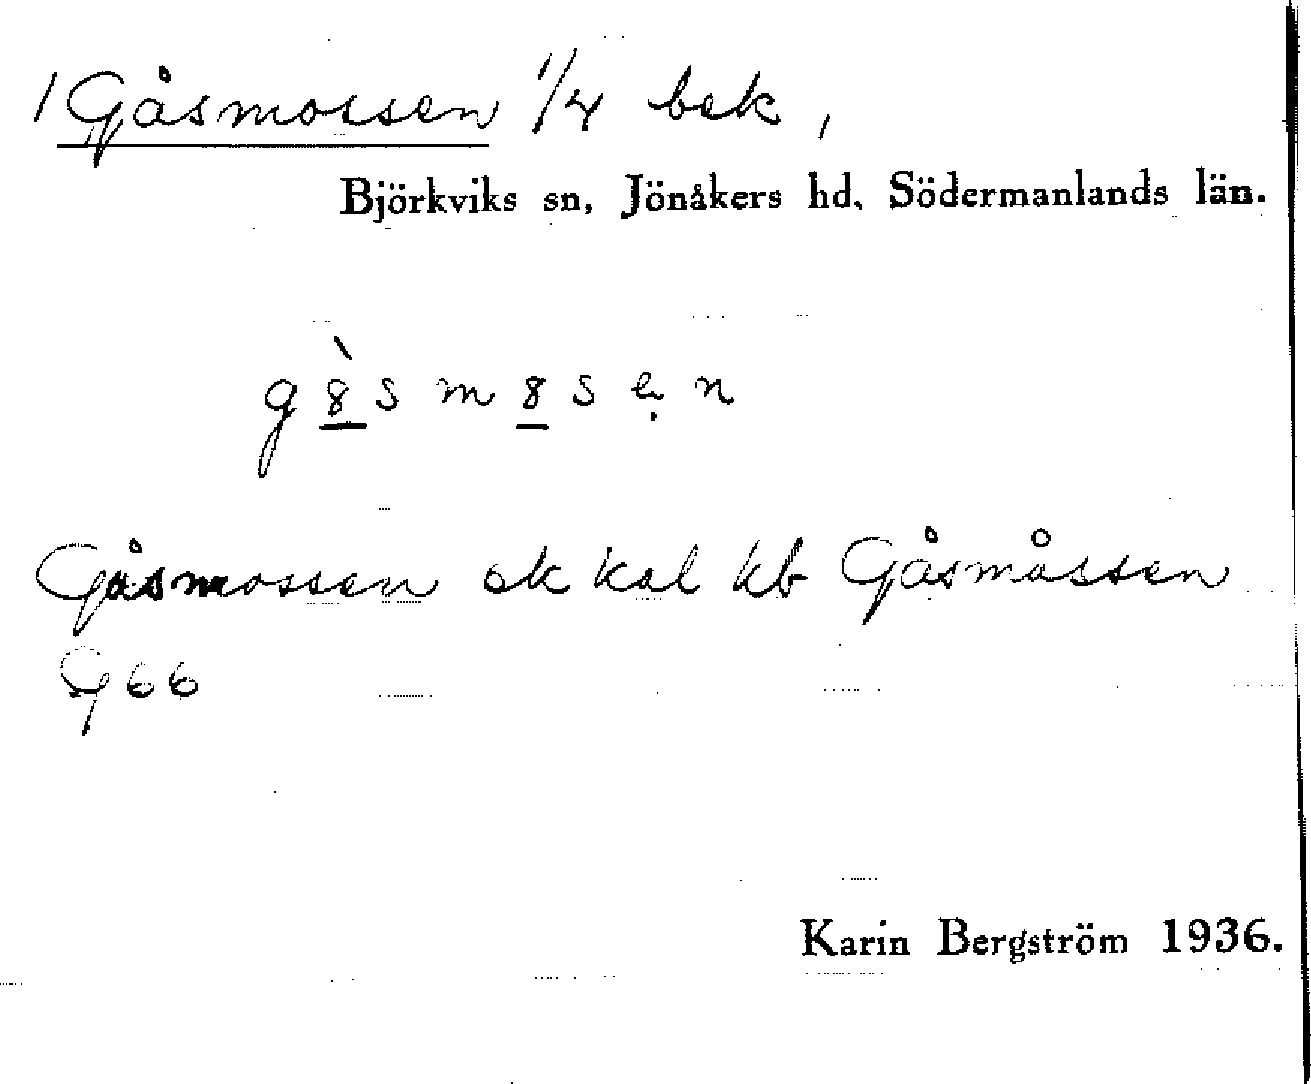 / Gåsmossen 1/4 bek,
Björkviks sn, Jönåkers hd, Södermanlands län.
g 8̲̀ s m 8̲ s ẹ n
Gåsmossen ek kal kb Gåsmåssen
G 66
Karin Bergström 1936.